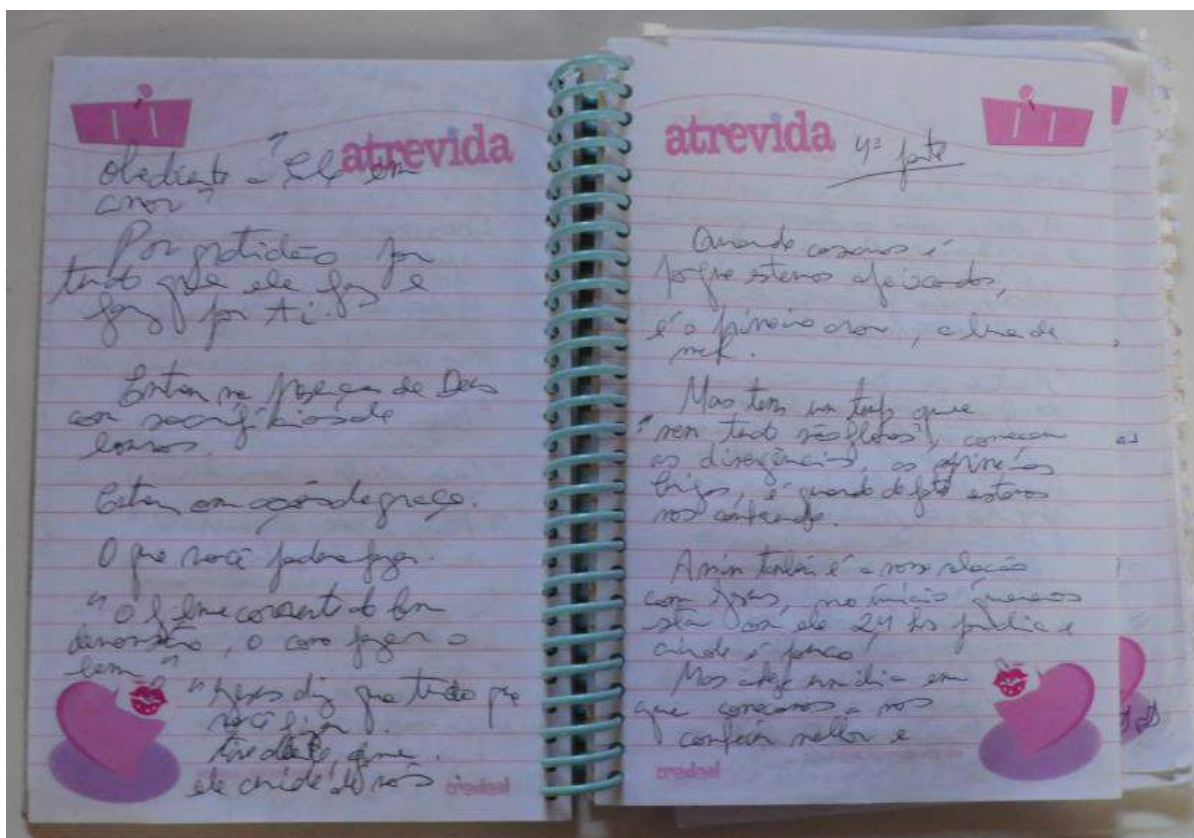 atrevida
obediente a Ele em
amor"
Por gratidão por
tudo que ele fez e
faz por ti.
Entrem na presença de Deus
com sacrifícios de
louvores.
Entrem com ações de graça.
O que você podera fazer.
"O filme corrente do bem
demonstrão, o como fazer o
bem"
"Jesus diz que tudo que
você
ele cuide de nós
credeal
atrevida
4ª parte
Quando casamos é
porque estamos apaixonados,
é o primeiro amor, a lua de
mel.
Mas tem um tempo que
"nem tudo são flores", começam
as divergências, as primeiras
brigas, é quando de fato estamos
nos conhecendo.
Assim também é a nossa relação
com Jesus, no início queremos
star com ele 24 hs por dia e
ainda é pouco
Mas chega um dia em
que começamos a nos
conhecer melhor e
credeal